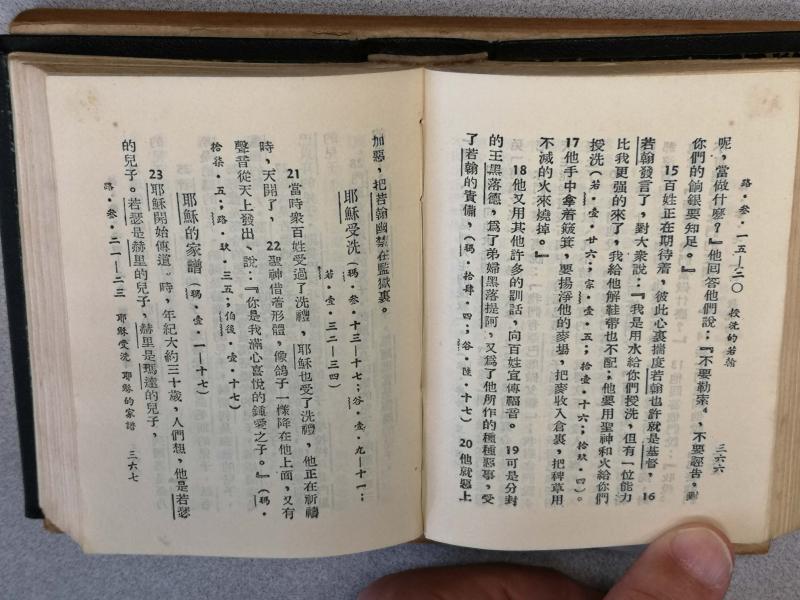 路·叁·一五—二〇　授洗的若翰　三六六
呢，當做什麼？』他回答他們說：『不要勒索，不要誣告，對
你們的餉銀要知足。』
15百姓正在期待着，彼此心裏揣度若翰也許就是基督，16
若翰發言了，對大衆說：『我是用水給你們授洗，但有一位能力
比我更强的來了，我給他解鞋帶也不配；他要用聖神和火給你們
授洗（若·壹·廿六；宗·壹·五；拾壹·十六；拾玖·四）。
17他手中拿着簸箕，要揚淨他的麥場，把麥收入倉裏，把稗草用
不滅的火來燒掉。』
18他又用其他許多的訓話，向百姓宣傳福音。19可是分封
的王黑落德，爲了弟婦黑落提阿，又爲了他所作的種種惡事，受
了若翰的責備，（瑪·拾肆·四；谷·陸·十七）20他就惡上
加惡，把若翰幽禁在監獄裏。
耶穌受洗（瑪·叁·十三—十七；谷·壹·九—十一；
若·壹·三二—三四）
21當時衆百姓受過了洗禮，耶穌也受了洗禮，他正在祈禱
時，天開了，22聖神借着形體，像鴿子一樣降在他上面，又有
聲音從天上發出、說：『你是我滿心喜悅的鍾愛之子。』（瑪
拾柒·五；路·玖·三五；伯後·壹·十七）
耶穌的家譜（瑪·壹·一—十七）
23耶穌開始傳道　時，年紀大約三十歲，人們想，他是若瑟
的兒子。若瑟是赫里的兒子，赫里是瑪達的兒子，
路·叁·二一—二三　耶穌受洗　耶穌的家譜　三六七